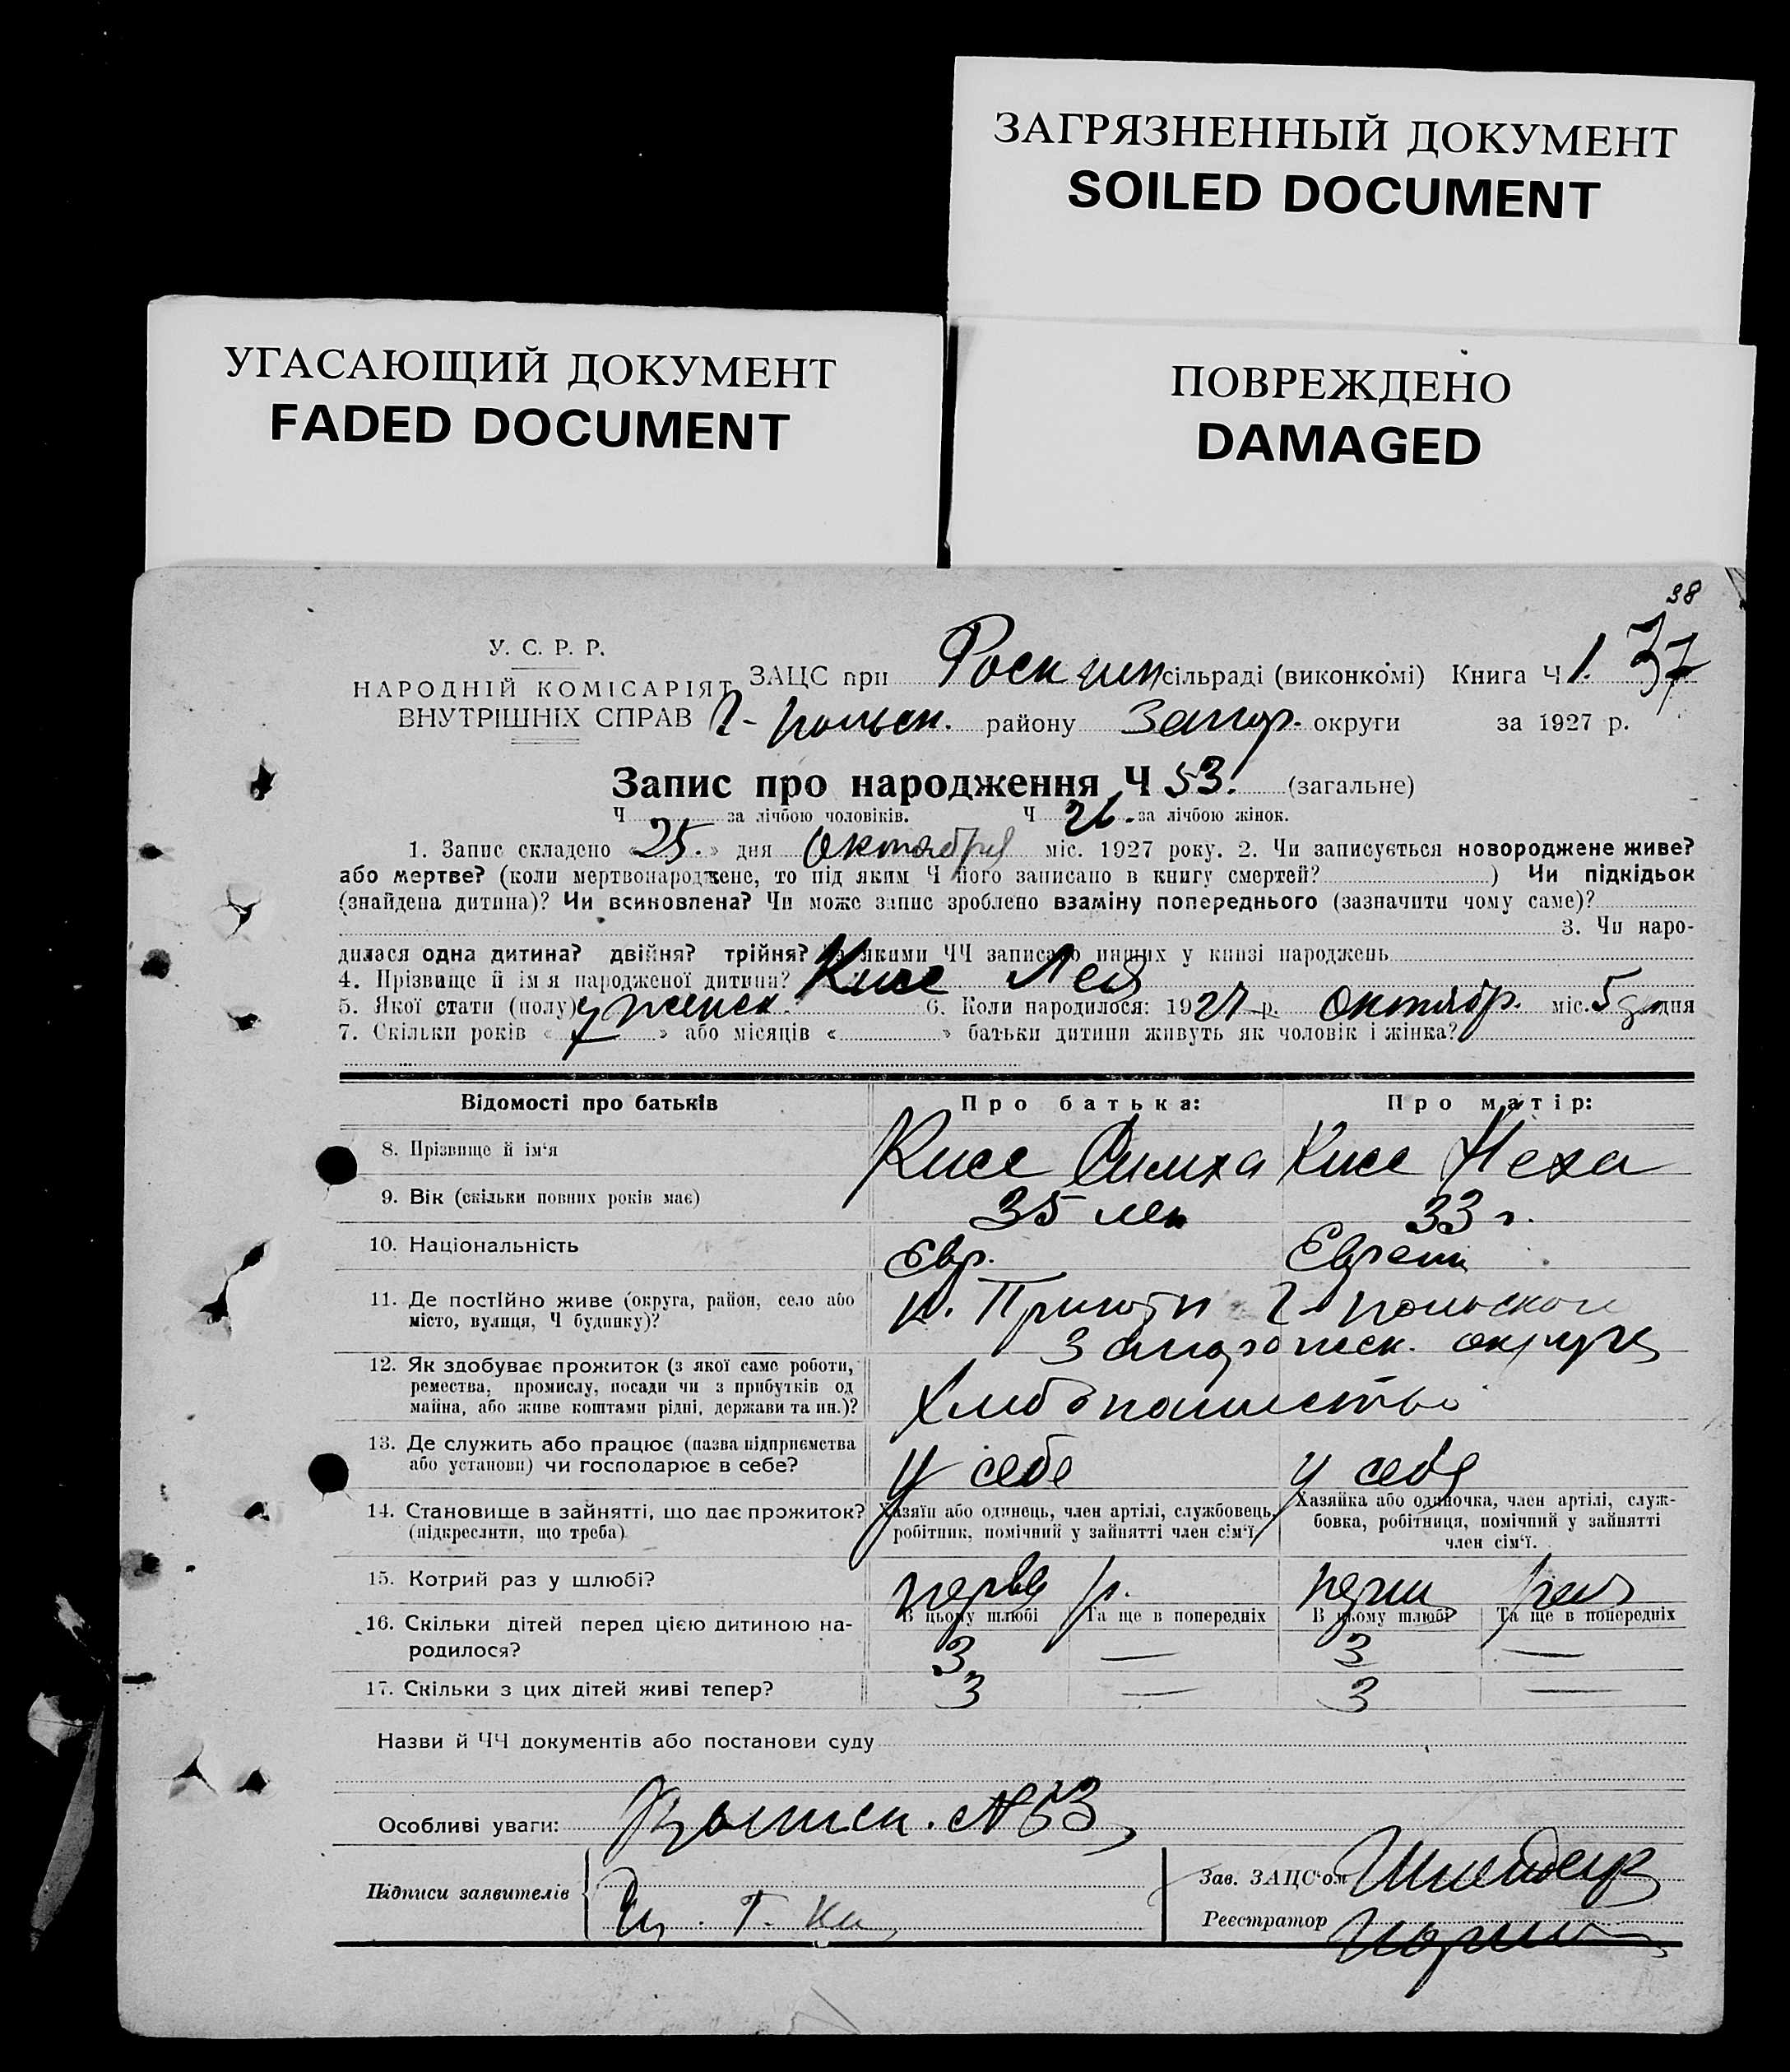 ЗАГРЯЗНЕННЫЙ ДОКУМЕНТ
SOILED DOCUMENT
УГАСАЮЩИЙ ДОКУМЕНТ
FADED DOCUMENT
ПОВРЕЖДЕНО
DAMAGED
38
У. С. Р. Р.
НАРОДНІЙ КОМІСАРІЯТ
ВНУТРІШНІХ СПРАВ
ЗАЦС при сільраді (виконкомі) Книга Ч 1. 37
Г-польск. району Запор. округи за 1927 р.
Запис про народження Ч 53. (загальне)
Ч за лічбою чоловіків. Ч 26. за лічбою жінок.
1. Запис складено «25.» дня Октября міс. 1927 року. 2. Чи записується новороджене живе?
або мертве? (коли мертвонароджене, то під яким Ч його записано в книгу смертей? ) Чи підкідьок
(знайдена дитина)? Чи всиновлена? Чи може запис зроблено взаміну попереднього (зазначити чому саме)?
3. Чи наро-
дилася одна дитина? двійня? трійня? За якими ЧЧ записано инших у книзі народжень
4. Прізвище й ім я народженої дитини? Кисс Лея
5. Якої стати (полу) женск. 6. Коли народилося: 1927 р. октябр. міс. 5 дня
7. Скільки років « » або місяців « » батьки дитини живуть як чоловік і жінка?
Відомості про батьків Про батька: Про матір:
8. Прізвище й ім‘я Кисс Симха Кисс Неха
9. Вік (скільки повних років має) 35 лет 33 г.
10. Національність Евр. Еврейк
11. Де постІйно живе (округа, район, село або
місто, вулиця, Ч будинку)?
к. Приють Г-польского
Запорожск. округа
12. Як здобуває прожиток (з якої саме роботи,
ремества, промислу, посади чи з прибутків од
майна, або живе коштами рідні, держави та ин.)?
Хлебопашество
13. Де служить або працює (назва підприємства
або установи) чи господарює в себе?
у себе у себя
14. Становище в зайнятті, що дає прожиток?
(підкреслити, що треба)
Хазяїн або одинець, член артілі, службовець,
робітник, помічний у зайнятті член сім‘ї.
Хазяйка або одиночка, член артілі, служ-
бовка, робітниця, помічний у зайнятті
член сім‘ї.
15. Котрий раз у шлюбі?
16. Скільки дітей перед цією дитиною на-
родилося?
В цьому шлюбі Та ще в попередніх В цьому шлюбі Та ще в попередніх
3 — 3 —
17. Скільки з цих дітей живі тепер? 3 — 3 —
Назви й ЧЧ документів або постанови суду
Особливі уваги: №53
Підписи заявителів
Зав. ЗАЦС‘ом
Реєстратор